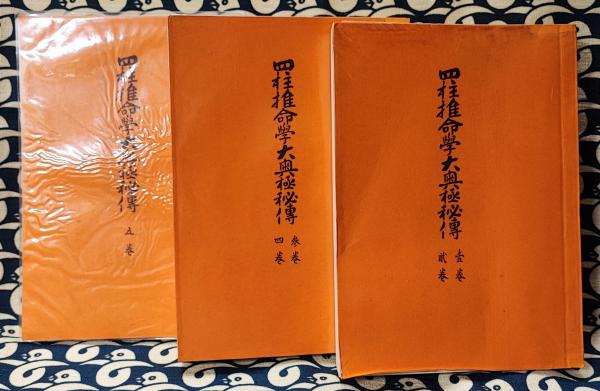 四柱推命學大奥極秘傳
壹巻
貳巻
四柱推命學大奥極秘傳
参巻
四巻
四柱推命學大奥極秘傳
五巻